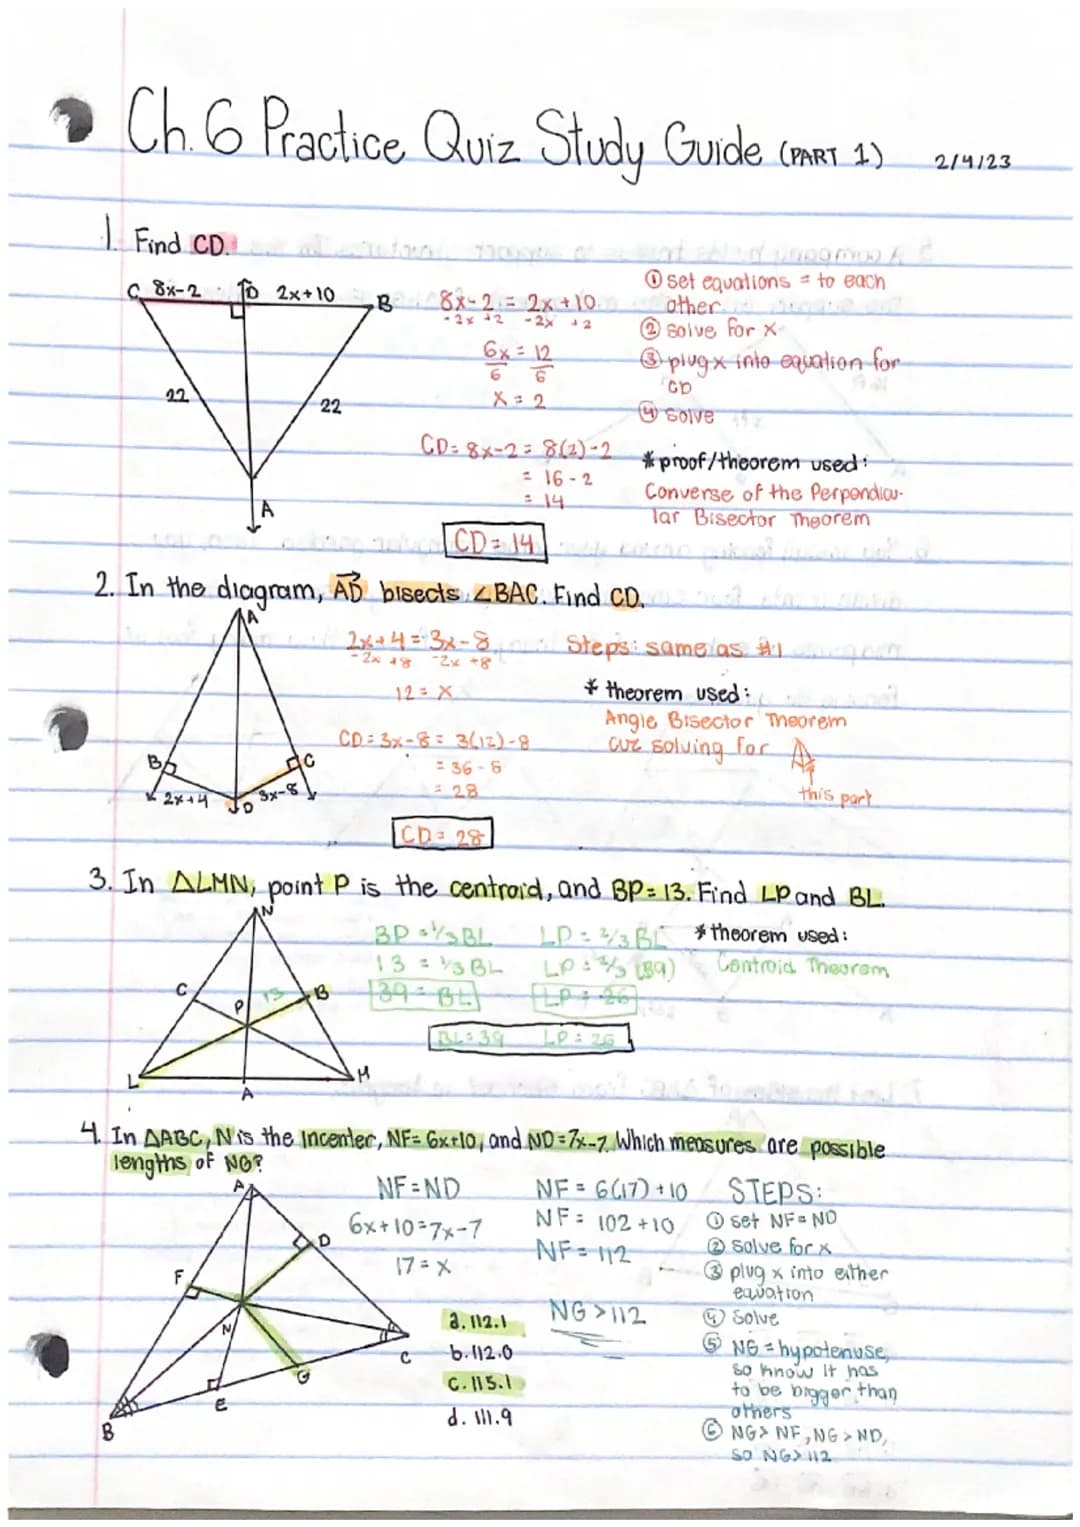 Ch. 6 Practice Quiz Study Guide (PART 1) 2/4/23
1. Find CD.
C 8x-2 D 2x+10 B
22
22
A
8x-2 = 2x+10
-2x +2 -2x +2
6x = 12
6 6
x = 2
CD = 8x-2 = 8(2)-2
= 16-2
= 14
CD = 14
① set equations = to each
other
② solve for x
③ plug x into equation for
CD
④ solve
* proof/theorem used:
Converse of the Perpendicu-
lar Bisector Theorem
2. In the diagram, AD bisects ∠BAC. Find CD.
A
B
C
2x+4
D
3x-8
2x+4 = 3x-8
-2x +8 -2x +8
12 = x
CD = 3x-8 = 3(12)-8
= 36-8
= 28
CD = 28
Steps: same as #1
* theorem used:
Angle Bisector Theorem
cuz solving for
this part
3. In △LMN, point P is the centroid, and BP = 13. Find LP and BL.
N
C
P
13
B
L
A
M
BP = 1/3 BL
13 = 1/3 BL
39 = BL
LP = 2/3 BL
LP = 2/3 (39)
LP = 26
BL = 39 LP = 26
* theorem used:
Centroid Theorem
4. In △ABC, N is the incenter, NF = 6x+10, and ND = 7x-7. Which measures are possible
lengths of NG?
A
D
F
N
C
G
E
B
NF = ND
6x+10 = 7x-7
17 = x
NF = 6(17) + 10
NF = 102 + 10
NF = 112
NG > 112
a. 112.1
b. 112.0
c. 115.1
d. 111.9
STEPS:
① set NF = ND
② solve for x
③ plug x into either
equation
④ solve
⑤ NG = hypotenuse,
so know it has
to be bigger than
others
⑥ NG > NF, NG > ND,
so NG > 112